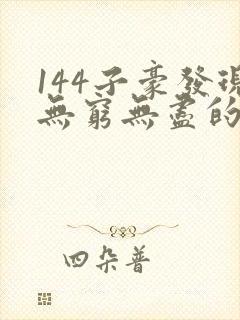 144子豪發現
無窮無盡的
四朵普